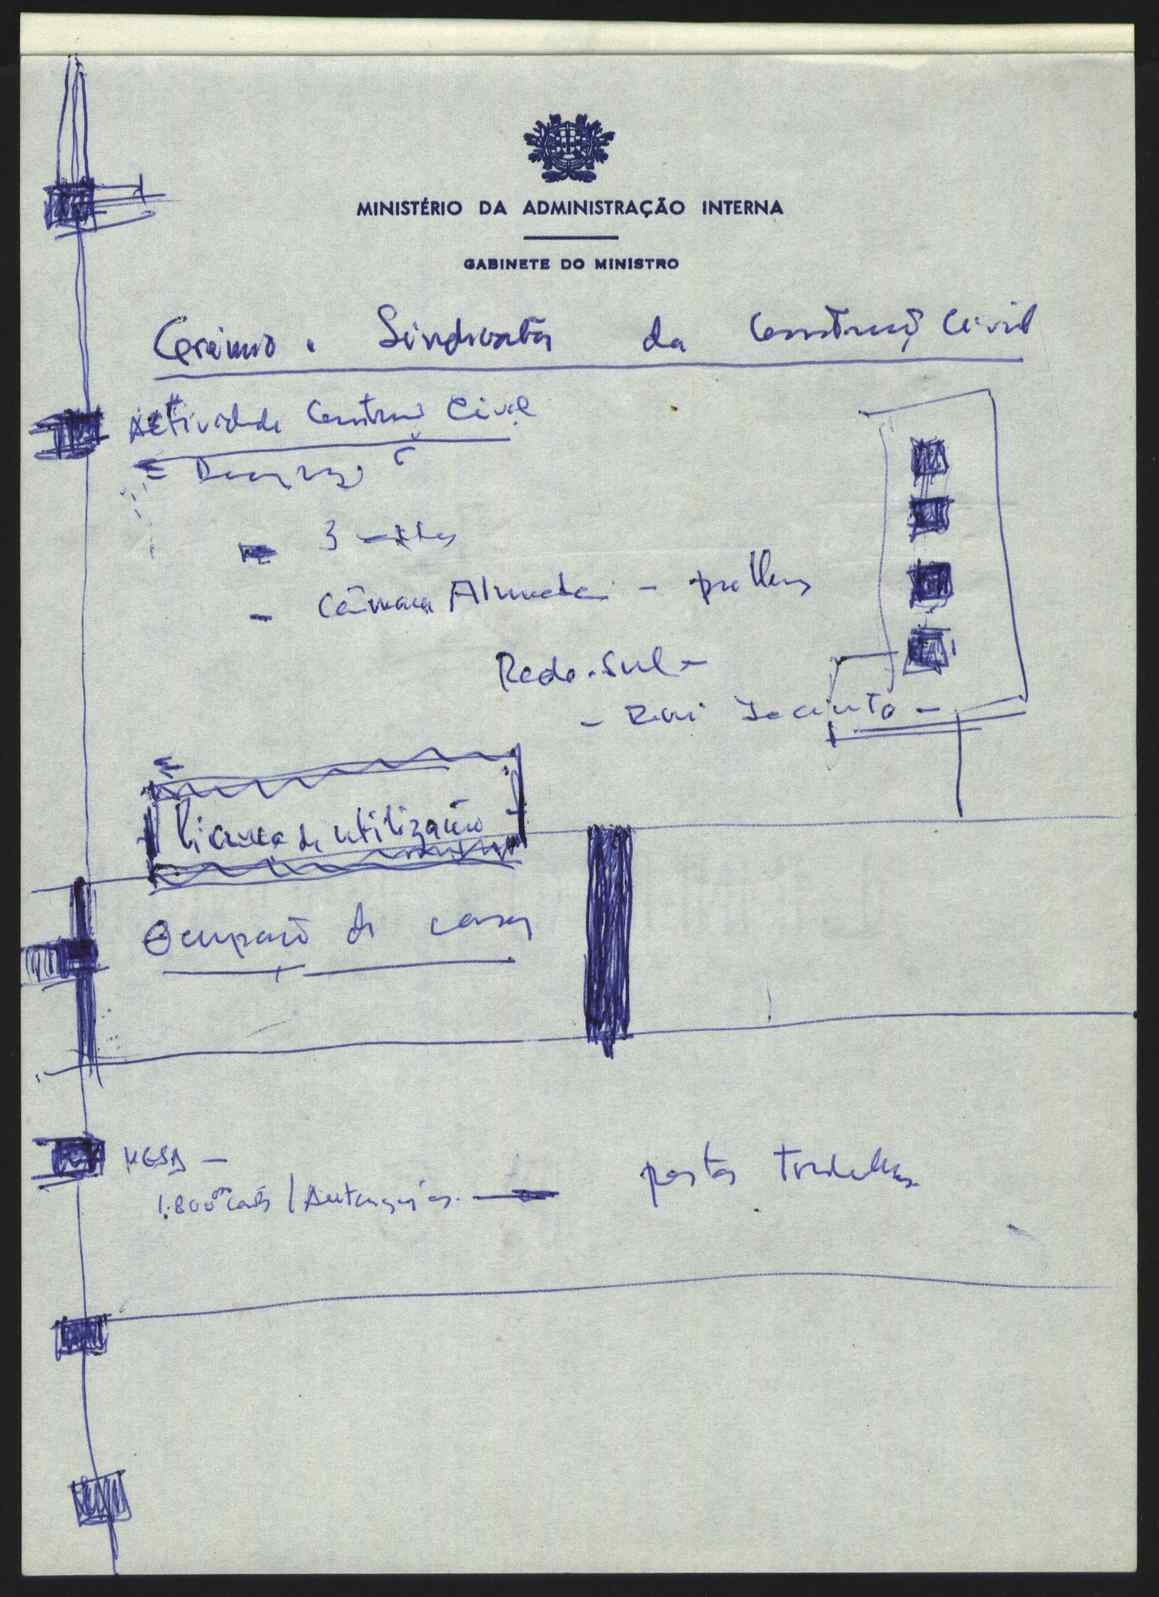 MINISTÉRIO DA ADMINISTRAÇÃO INTERNA
GABINETE DO MINISTRO
Grémio . Sindicatos da Construç Civil
Actividade Construç Civil
3
Câmara Almada -
Rádio. Sul -
- Rui Jacinto -
licença de utilização
Ocupação de casas
MESA -
1.800 /
postos trabalho